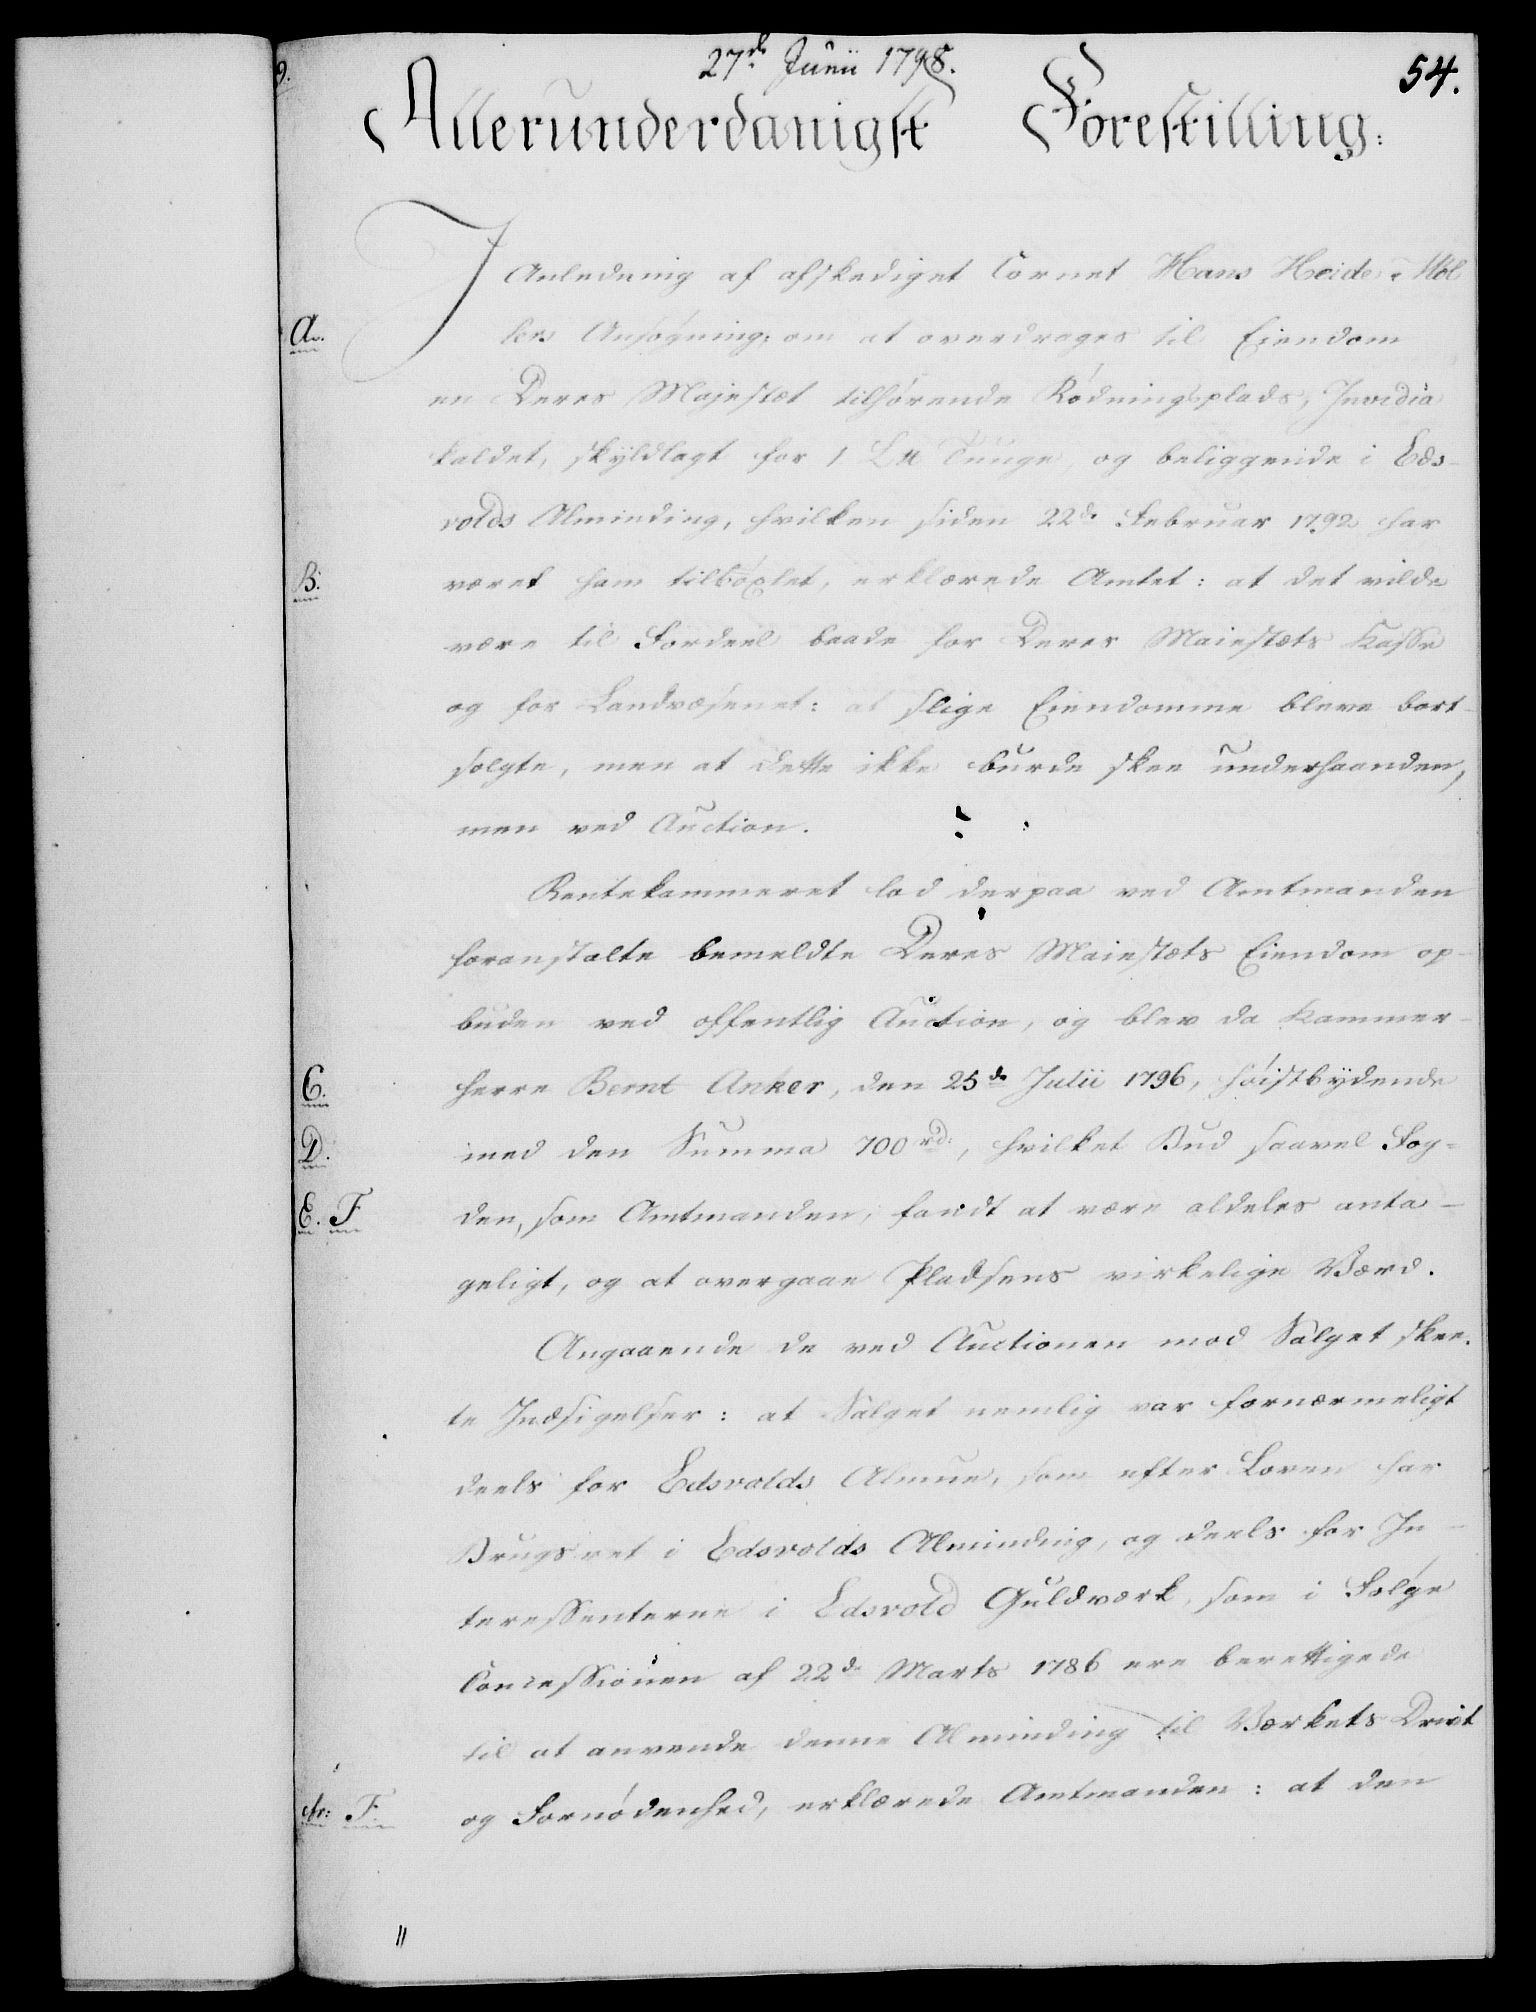 27de Junii 1798.
54.
9.
Allerunderdanigst Forestilling:
I Anledning af afskediget Cornet Hans Heide Møl
A.
lers Ansøgning, om at overdrages til Eiendom
en Deres Majestæt tilhørende Rødningsplads, Invidia
kaldet, skyldlagt for 1 L℔ Tunge, og beliggende i Eds-
volds Alminding, hvilken siden 22de Februar 1792 har
B.
været ham tilbøxlet, erklærede Amtet: at det vilde
være til Fordeel baade for Deres Maiestæts Kasse
og for Landvæsenet: at slige Eiendomme bleve bort-
solgte, men at dette ikke burde skee underhaanden,
men ved Auction.
Rentekammeret lod derpaa ved Amtmanden
foranstalte bemeldte Deres Maiestæts Eiendom op-
buden ved offentlig Auction, og blev da Kammer-
C.
herre Bernt Anker, den 25de Julii 1796, høistbydende
D.
med den Summa 700 rd:, hvilket Bud saavel Fog-
E. F
den, som Amtmanden, fandt at være aldeles anta-
geligt, og at overgaae Pladsens virkelige Værd.
Angaaende de ved Auctionen mod Salget skee-
te Indsigelser: at Salget nemlig var fornærmeligt
deels for Edsvolds Almue, som efter Loven har
Brugsret i Edsvolds Alminding, og deels for In-
teressenterne i Edsvold Guldværk, som i Følge
Concessionen af 22de Marts 1786 ere berettigede
til at anvende denne Alminding til Værkets Drivt
cfr: F.
og Fornødenhed, erklærede Amtmanden: at den